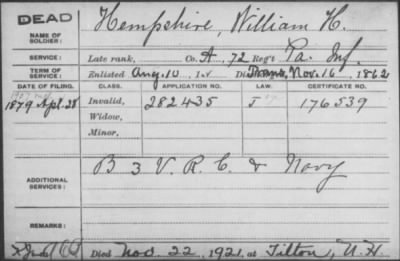 DEAD
NAME OF SOLDIER: Hempshire, William H.
SERVICE: Late rank, Co. A, 72 Reg't Pa. Inf.
TERM OF SERVICE: Enlisted Aug. 10, Trans. Nov. 16, 1862
DATE OF FILING. CLASS. APPLICATION NO. LAW. CERTIFICATE NO.
1879 Apl. 28 Invalid, 282435 J 176539
Widow,
Minor,
ADDITIONAL SERVICES: B 3 V. R. C. & Navy
REMARKS:
Died Nov. 22, 1921, at Tilton, N. H.